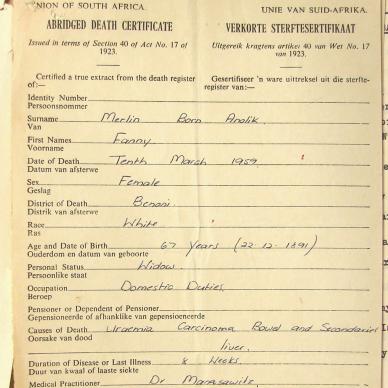 UNION OF SOUTH AFRICA. UNIE VAN SUID-AFRIKA.
ABRIDGED DEATH CERTIFICATE VERKORTE STERFTESERTIFIKAAT
Issued in terms of Section 40 of Act No. 17 of 1923. Uitgereik kragtens artikel 40 van Wet No. 17 van 1923.
Certified a true extract from the death register of:— Gesertifiseer 'n ware uittreksel uit die sterfteregister van:—
Identity Number
Persoonsnommer
Surname Merlin Born Anolik.
Van
First Names Fanny.
Voorname
Date of Death Tenth March 1959.
Datum van afsterwe
Sex Female
Geslag
District of Death Benoni
Distrik van afsterwe
Race White
Ras
Age and Date of Birth 67 Years (22-12-1891)
Ouderdom en datum van geboorte
Personal Status Widow.
Persoonlike staat
Occupation Domestic Duties
Beroep
Pensioner or Dependent of Pensioner
Gepensioeneerde of afhanklike van gepensioeneerde
Causes of Death Uraemia Carcinoma Bowel and Secondaries
Oorsake van dood liver.
Duration of Disease or Last Illness 8 Weeks.
Duur van kwaal of laaste siekte
Medical Practitioner Dr Manasawitz